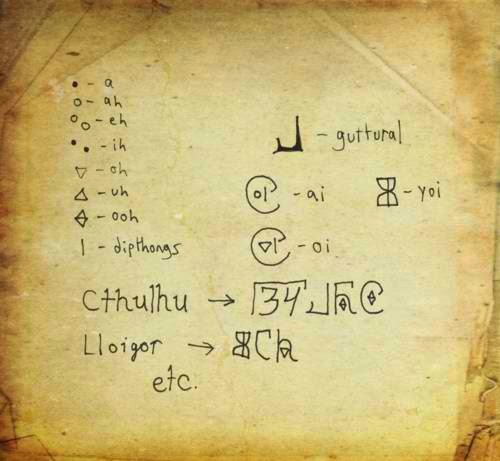 • - a
o - ah
o o - eh
• • - ih
▽ - oh
△ - uh
- ooh
| - dipthongs
- guttural
- ai
- yoi
- oi
Cthulhu →
Lloigor →
etc.